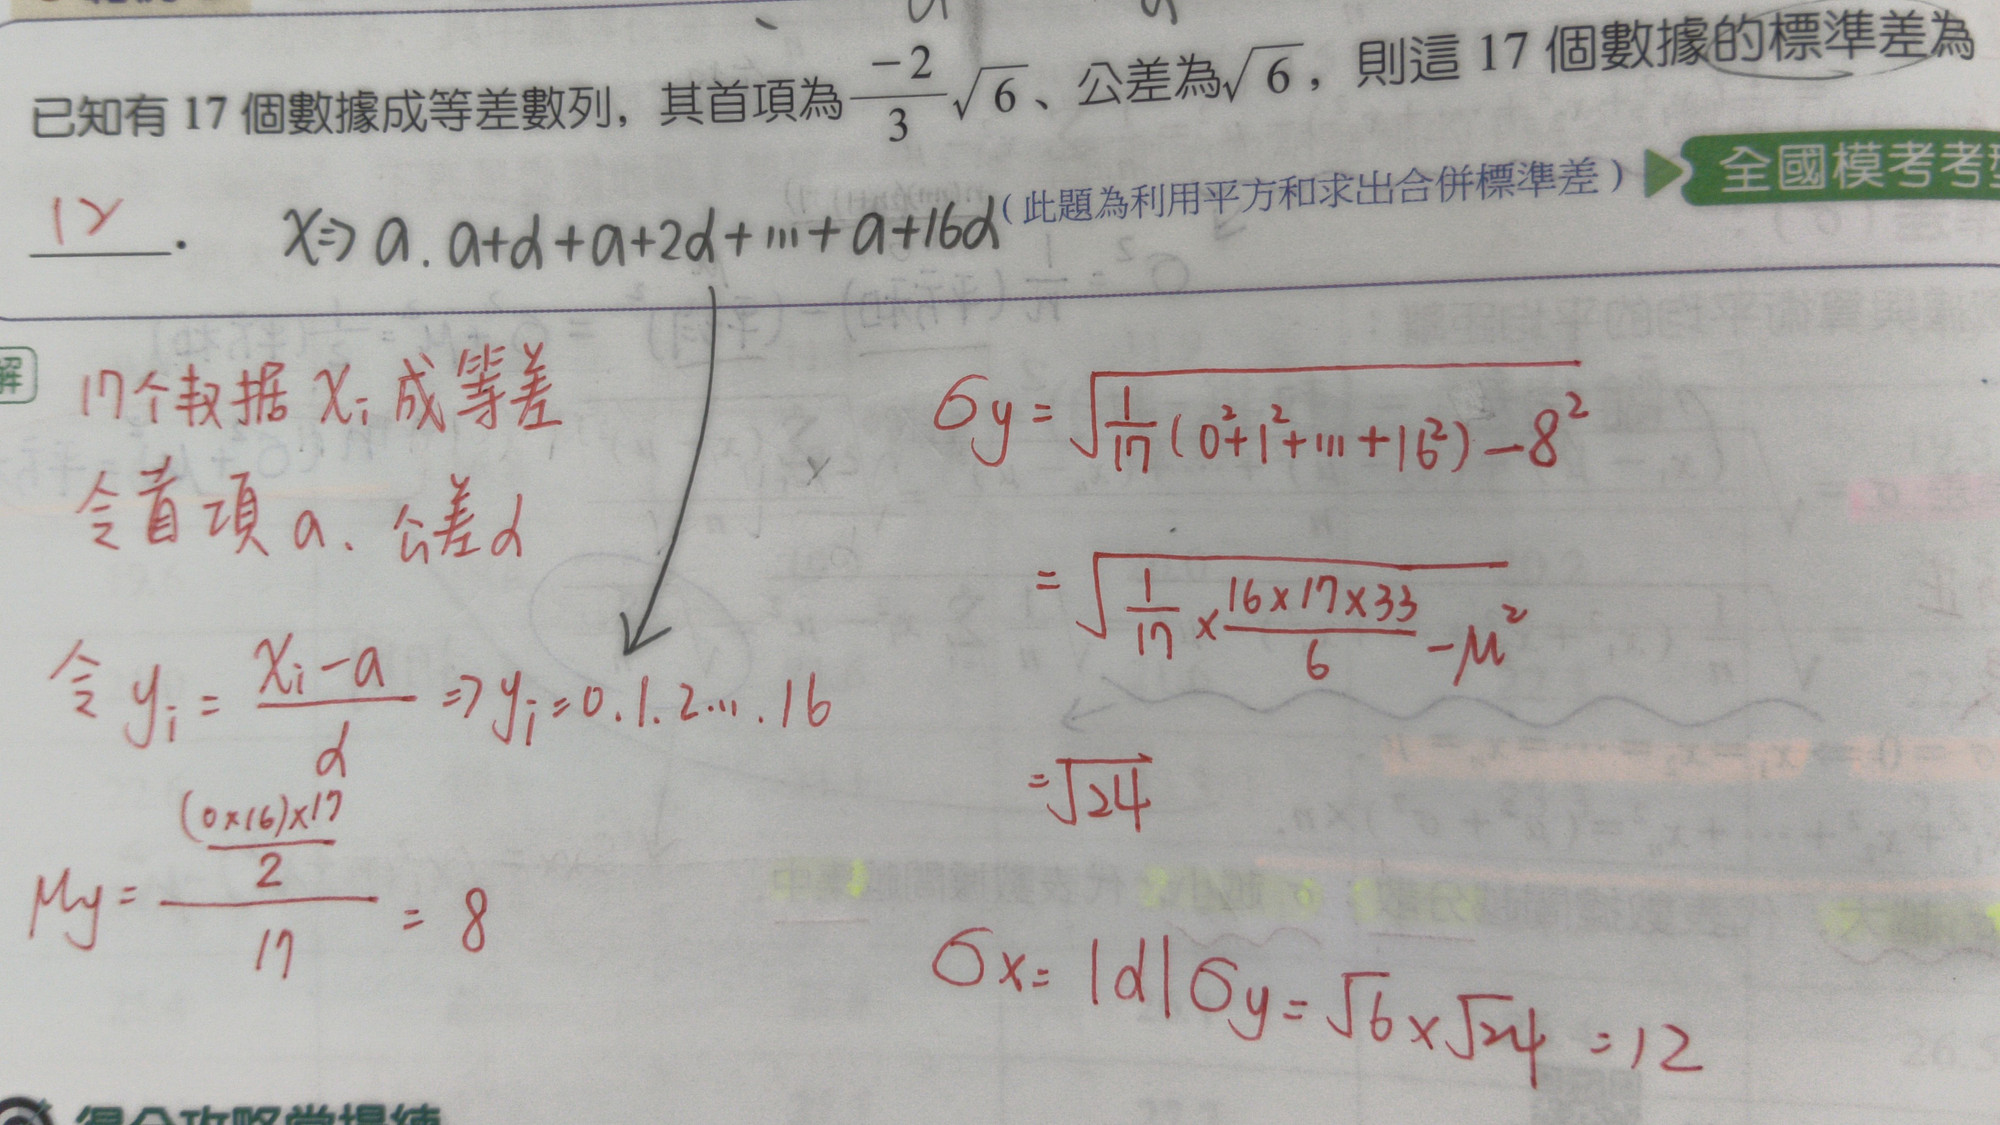 已知有 17 個數據成等差數列，其首項為 -2/3 √6、公差為√6，則這 17 個數據的標準差為
12.
（此題為利用平方和求出合併標準差）
全國模考考
x⇒ a. a+d+a+2d+…+a+16d
解
17个數据 xi 成等差
令首項 a. 公差d
令 yi = (xi-a)/d ⇒ yi = 0.1.2….16
μy = ((0×16)×17/2)/17 = 8
σy = √(1/17 (0²+1²+…+16²) - 8²)
= √(1/17 × (16×17×33)/6 - μ²)
= √24
σx = |d| σy = √6 × √24 = 12